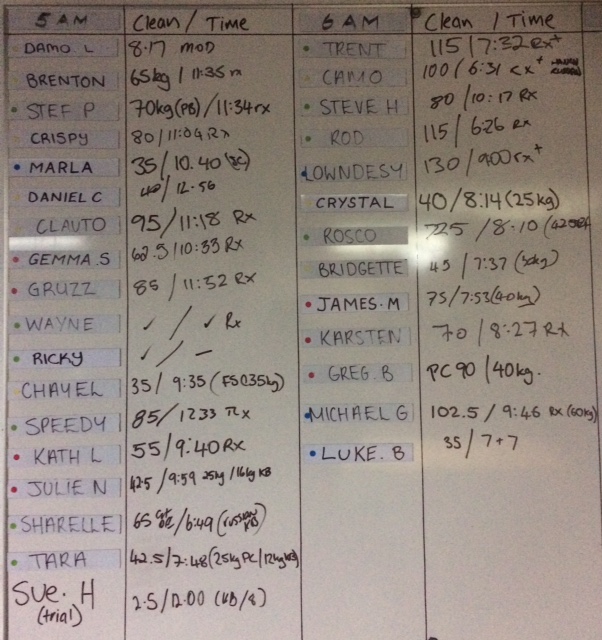 5 AM Clean / Time
DAMO L 8.17 MOD
BRENTON 65kg / 11:35
STEF P 70kg (PB) / 11:34 rx
CRISPY 80 / 11:04 Rx
MARLA 35 / 10.40
DANIEL C 40 / 12.56
CLAUTO 95 / 11:18 Rx
GEMMA.S 62.5 / 10:33 Rx
GRUZZ 85 / 11:52 Rx
WAYNE ✓ / ✓ Rx
RICKY ✓ / –
CHAYEL 35 / 9:35 (FSQ35kg)
SPEEDY 85 / 1233 Rx
KATH L 55 / 9:40 Rx
JULIE N 42.5 / 9:59 25kg / 16kg KB
SHARELLE 65 / 6:49 (RUSSIAN KB)
TARA 42.5 / 7:48 (25kg PC / 12kg KB)
Sue. H 2.5 / 12.00 (KB/8)
(trial)
6 AM Clean / Time
TRENT 115 / 7:32 Rx+
CAMO 100 / 6:31 rx+
STEVE H 80 / 10:17 Rx
ROD 115 / 6:26 Rx
LOWNDESY 130 / 900 rx+
CRYSTAL 40 / 8:14 (25kg)
ROSCO 72.5 / 8:10
BRIDGETTE 45 / 7:37
JAMES.M 75 / 7:53 (40kg)
KARSTEN 70 / 8:27 Rx
GREG.B PC 90 / 40kg.
MICHAEL G 102.5 / 9:46 Rx (60kg)
LUKE.B 35 / 7+7